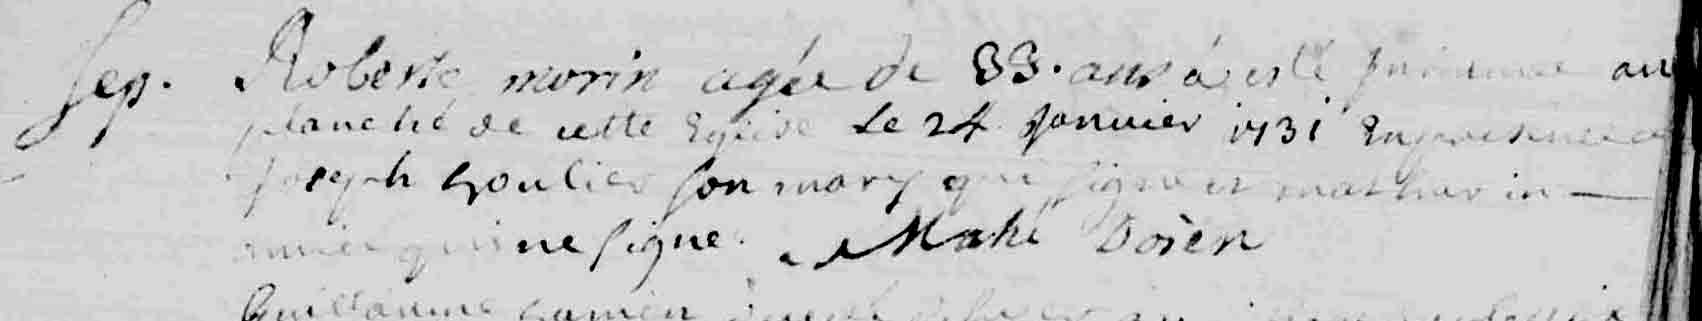 Sep. Roberte morin agée de 33. ans a esté inhumée au
planché de cette Eglise Le 24 Janvier 1731 En presence de
Joseph houlier son mary qui signe et mathurin
qui ne signe. Mahé Doien
Guillaume